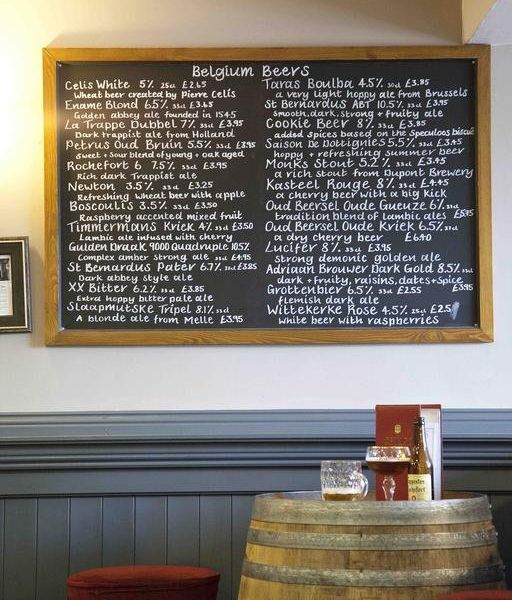 Belgium Beers
Celis White 5% 25cl £2.65
Wheat beer created by Pierre Celis
Ename Blond 6.5% 33cl £3.65
Golden abbey ale founded in 1545
La Trappe Dubbel 7% 33cl £3.95
Dark trappist ale from Holland
Petrus Oud Bruin 5.5% 33cl £3.95
sweet + sour blend of young + oak aged
Rochefort 6 7.5% 33cl £3.95
Rich dark Trappist ale
Newton 3.5% 33cl £3.25
Refreshing wheat beer with apple
Boscoulis 3.5% 33cl £3.50
Raspberry accented mixed fruit
Timmermans Kriek 4% 33cl £3.50
Lambic ale infused with cherry
Gulden Draak 9000 Quadruple 10.5%
Complex amber strong ale 33cl £4.95
St Bernardus Pater 6.7% 33cl £3.85
Dark abbey style ale
XX Bitter 6.2% 33cl £3.85
Extra hoppy bitter pale ale
Slaapmutske Tripel 8.1% 33cl
A blonde ale from Melle £3.95
Taras Boulba 4.5% 33cl £3.85
a very light hoppy ale from Brussels
St Bernardus ABT 10.5% 33cl £3.95
smooth, dark, strong + fruity ale
Cookie Beer 8% 33cl £3.85
added spices based on the Speculoos biscuit
Saison De Dottignies 5.5% 33cl £3.45
hoppy + refreshing summer beer
Monks Stout 5.2% 33cl £3.45
a rich stout from Dupont Brewery
Kasteel Rouge 8% 33cl £4.45
a cherry beer with a big kick
Oud Beersel Oude Gueuze 6% 33cl
tradition blend of lambic ales £5.95
Oud Beersel Oude Kriek 6.5% 33cl
a dry cherry beer £6.90
Lucifer 8% 33cl £3.95
strong demonic golden ale
Adriaan Brouwer Dark Gold 8.5% 33cl
dark + fruity, raisins, dates + spice
Grottenbier 6.5% 33cl £2.55 £3.95
flemish dark ale
Wittekerke Rose 4.5% 25cl £2.5
white beer with raspberries